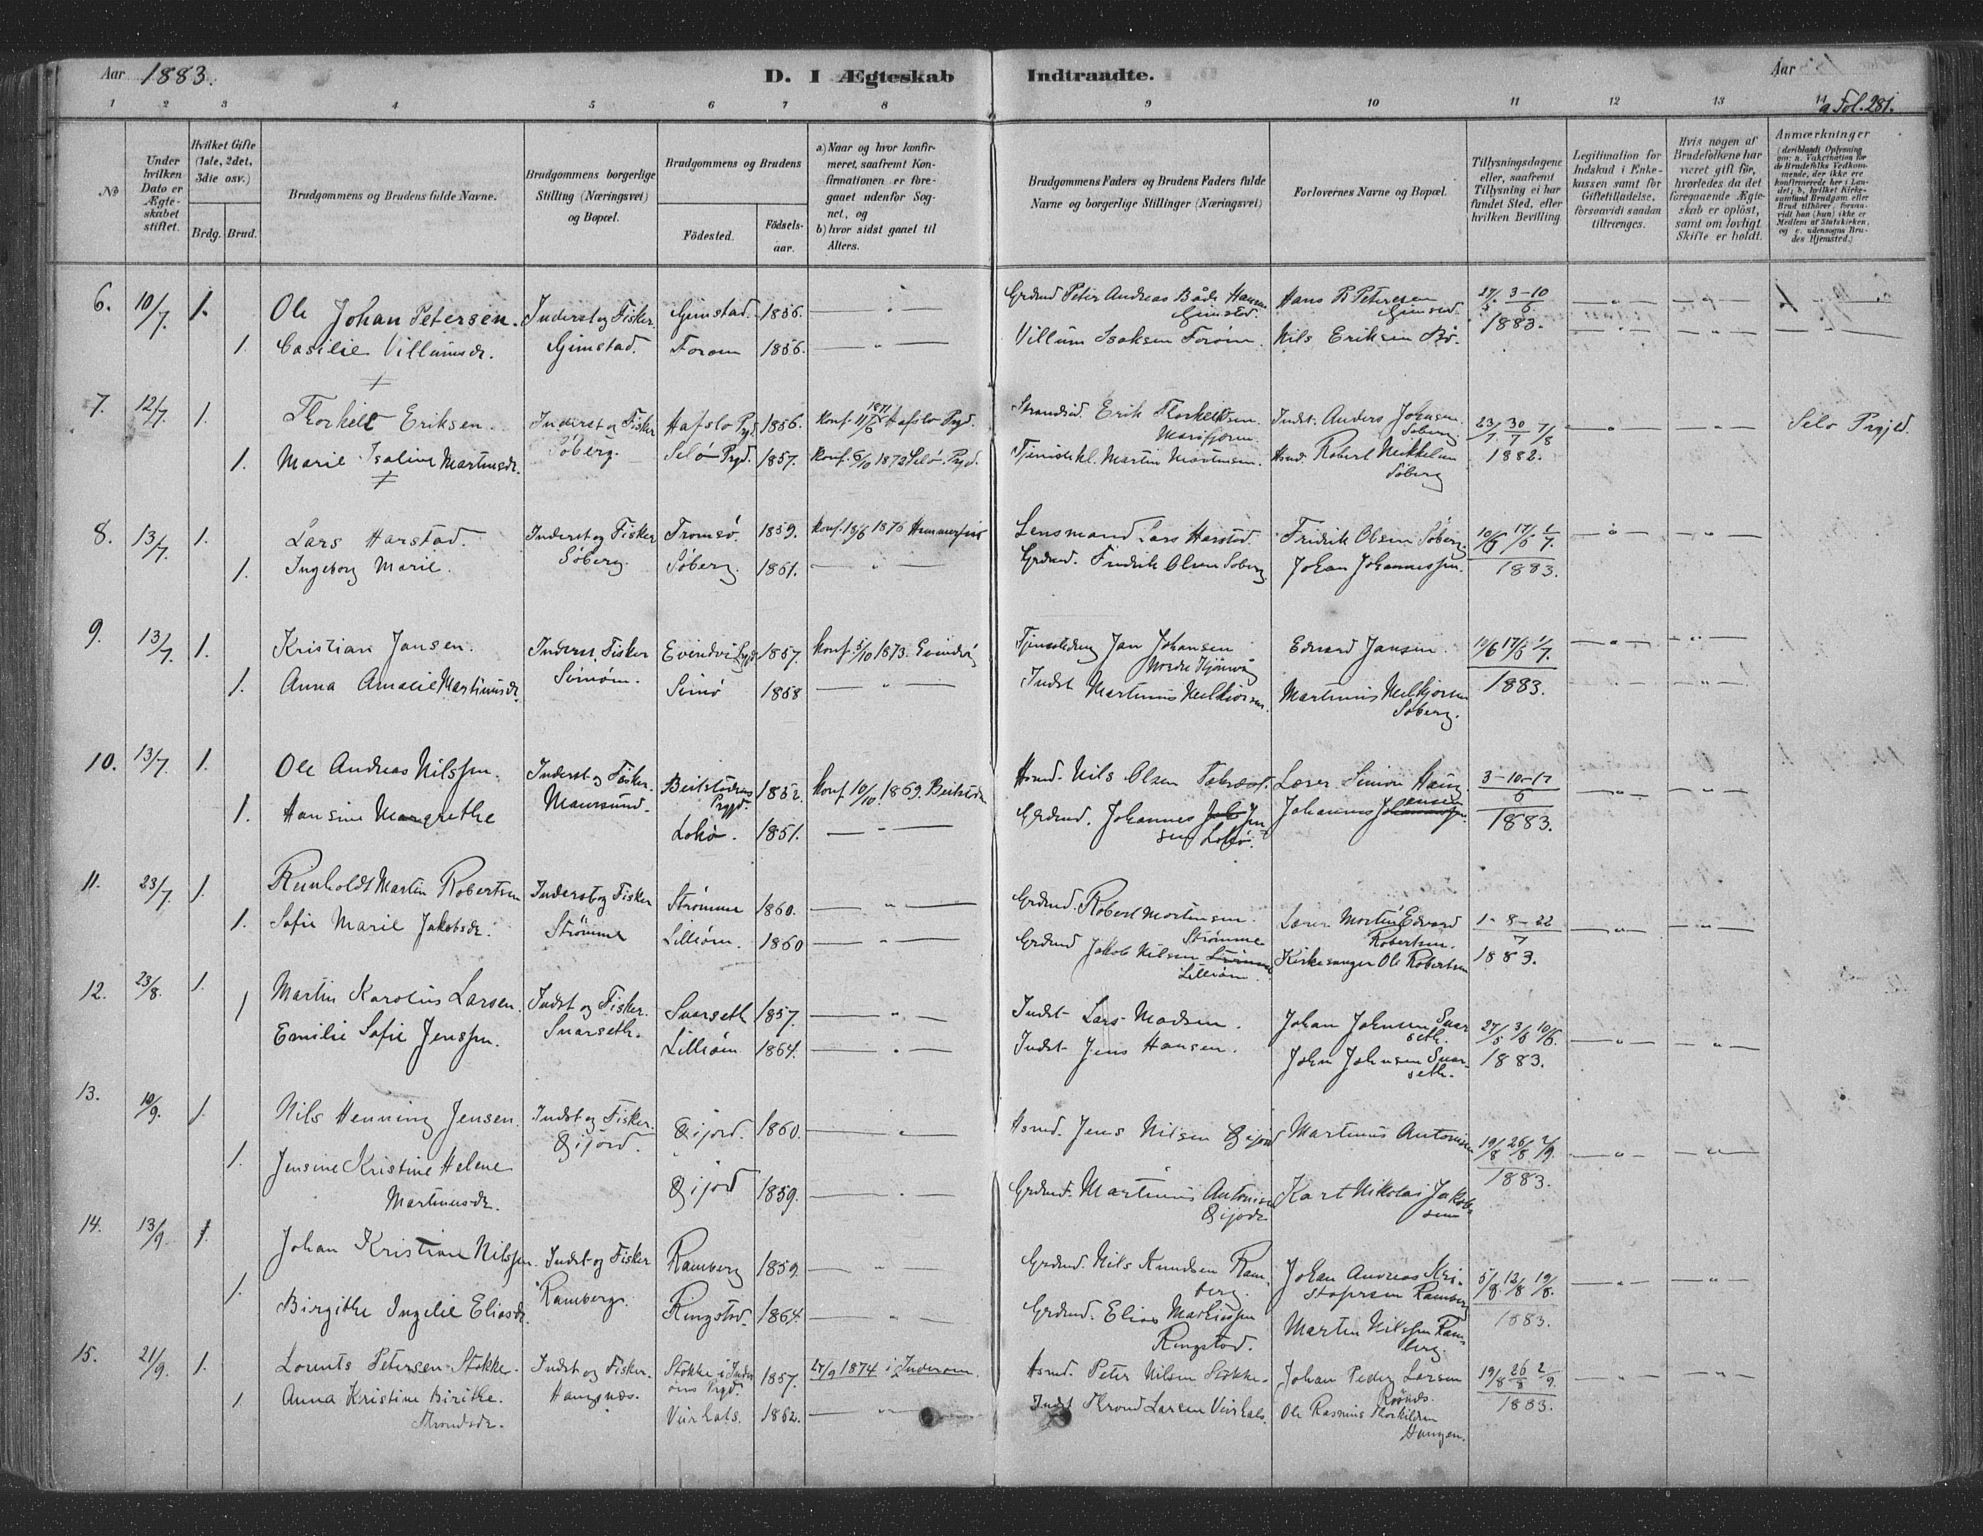 Aar 1883.
D. I Ægteskab Indtraadte.
Aar
a Fol. 281.
1 2 3 4 5 6 7 8 9 10 11 12 13
No
Under hvilken Dato er Ægteskabet stiftet.
Hvilket Gifte (1ste, 2det, 3die osv.)
Brdg. Brud.
Brudgommens og Brudens fulde Navne.
Brudgommens borgerlige Stilling (Næringsvei) og Bopæl.
Brudgommens og Brudens
Fødested.
Fødsels-aar.
a) Naar og hvor konfirmeret, saafremt Konfirmationen er foregaaet udenfor Sognet, og
b) hvor sidst gaaet til Alters.
Brudgommens Faders og Brudens Faders fulde Navne og borgerlige Stillinger (Næringsvei)
Forlovernes Navne og Bopæl.
Tillysningsdagene eller, saafremt Tillysning ei har fundet Sted, efter hvilken Bevilling.
Legitimation for Indskud i Enkekassen samt for Giftetilladelse, forsaavidt saadan tiltrænges.
Hvis nogen af Brudefolkene har været gift før, hvorledes da det foregaaende Ægteskab er opløst, samt om lovligt Skifte er holdt.
Anmærkninger
6. 10/7 1. Ole Johan Petersen. Inderst og Fisker. Gimstad. 1856. Grdmd Peter Andreas Hansen Gimstad. Hans R Petersen Gimstad 27/5 3-10/6 1883.
1. Casilie Villumsdr. Gimstad. 1856. Villum Isaksen Nils Eriksen Bø.
7. 12/7 1. Thorkel Eriksen. Inderst og Fisker Hafslo Prgd. 1856. Konf. 11/6 1871 Hafslo Prgd. Strandsid. Erik Thorkelsen Marifjoren Indst. Anders Johnsen Søberg 23/7 30/7 7/8 1882. Selø Prgjd.
1. Marie Isaline Martinsdr. Søberg. Selø Prgd. 1857. Konf. 6/10 1872 Selø Prgd. Martin Martinsen. Robert Mikkelsen Søberg
8. 13/7 1. Lars Harstad. Inderst og Fisker Tromsø. 1859. Konf. 13/6 1876 Hammerfest Lensmand Lars Harstad. Fredrik Olsen Søberg. 10/6 17/6 1/7. 1883.
1. Ingeborg Marie. Søberg. Søberg. 1861. Grdmd. Fredrik Olsen Søberg. Johan Johannessen.
9. 13/7 1. Kristian Jansen. Inderst. Fisker Evindvi 1857. Konf. 5/10 1873. Evindvig Jan Johansen Edvard Jansen. 10/6 17/6 1/7. 1883.
1. Anna Amalie Martinusdr. 1858 Indst Martinus Melkiorsen. Martinus Melkjorsen Søberg.
10. 13/7. 1. Ole Andreas Nilssen. Inderst og Fisker. Beitstadens Prgd. 1852. Konf. 10/10. 1869. Beitstad Nils Olsen Lærer Simon Haug 3-10-17/6 1883.
1. Hansine Margrethe Lokø. 1851. Grdmd. Johannes Jensen Lokø. Johannes Jensen
11. 23/7 1. Reinholdt Martin Robertsen Inderst og Fisker Strømme 1860. Grdmd. Robert Mortensen. Strømme Lærer Morten Edvard Robertsen. 1-8-22/7 1883.
1. Sofie Marie Jakobsdr. Strømme Lilleiøm. 1860 Grdmd Jakob Nilsen Lilleiøm Kirkesanger Ole Robertsen
12. 23/8. 1. Martin Karolius Larsen. Indst og Fisker. Snarseth 1857. Indst Lars Madsen. Johan Johnsen Snarseth. 27/5 3/6 10/6. 1883.
1 Emilie Sofie Jenssen. Snarseth. Lilleiøm 1864. Indst Jens Hansen. John Johnsen Snarseth.
13. 10/9. 1. Nils Henning Jensen. Indst og Fisker. Qvijord. 1860. Jens Nilsen Qvijord Martinus Antonisen 19/8 26/8 2/9. 1883.
1. Jensine Kristine Helene Martinusdr. Qvijord. Qvijord 1859. Grdmd. Martinus Antonisen Qvijord. Karl Nikolai Jakobsen
14. 13/9. 1. Johan Kristian Nilssen. Indst og Fisker Ramberg 1859. Grdmd. Nils Knudsen Ramberg. Johan Andreas Kristofersen Ramberg 5/8. 12/8 19/8. 1883.
1. Birgithe Ingelie Eliasdr. Ramberg. Ringstad. 1864. Grdmd. Elias Mathissen Ringstad. Martin Nilssen Ramberg.
15. 21/9. 1. Lorents Petersen Stokke. Indst og Fisker. Stokke i Inderøens Prgd. 1857. 27/9 1874 i Inderøen. Peter Nilsen Stokke. Johan Peder Larsen 19/8 26/8 2/9. 1883.
1 Anna Kristine Birithe Throndsdr. Haugsnæs. Veirhals. 1862. Indst Thrond Larsen Veirhals. Ole Rasmus Thorkildsen Haugen.